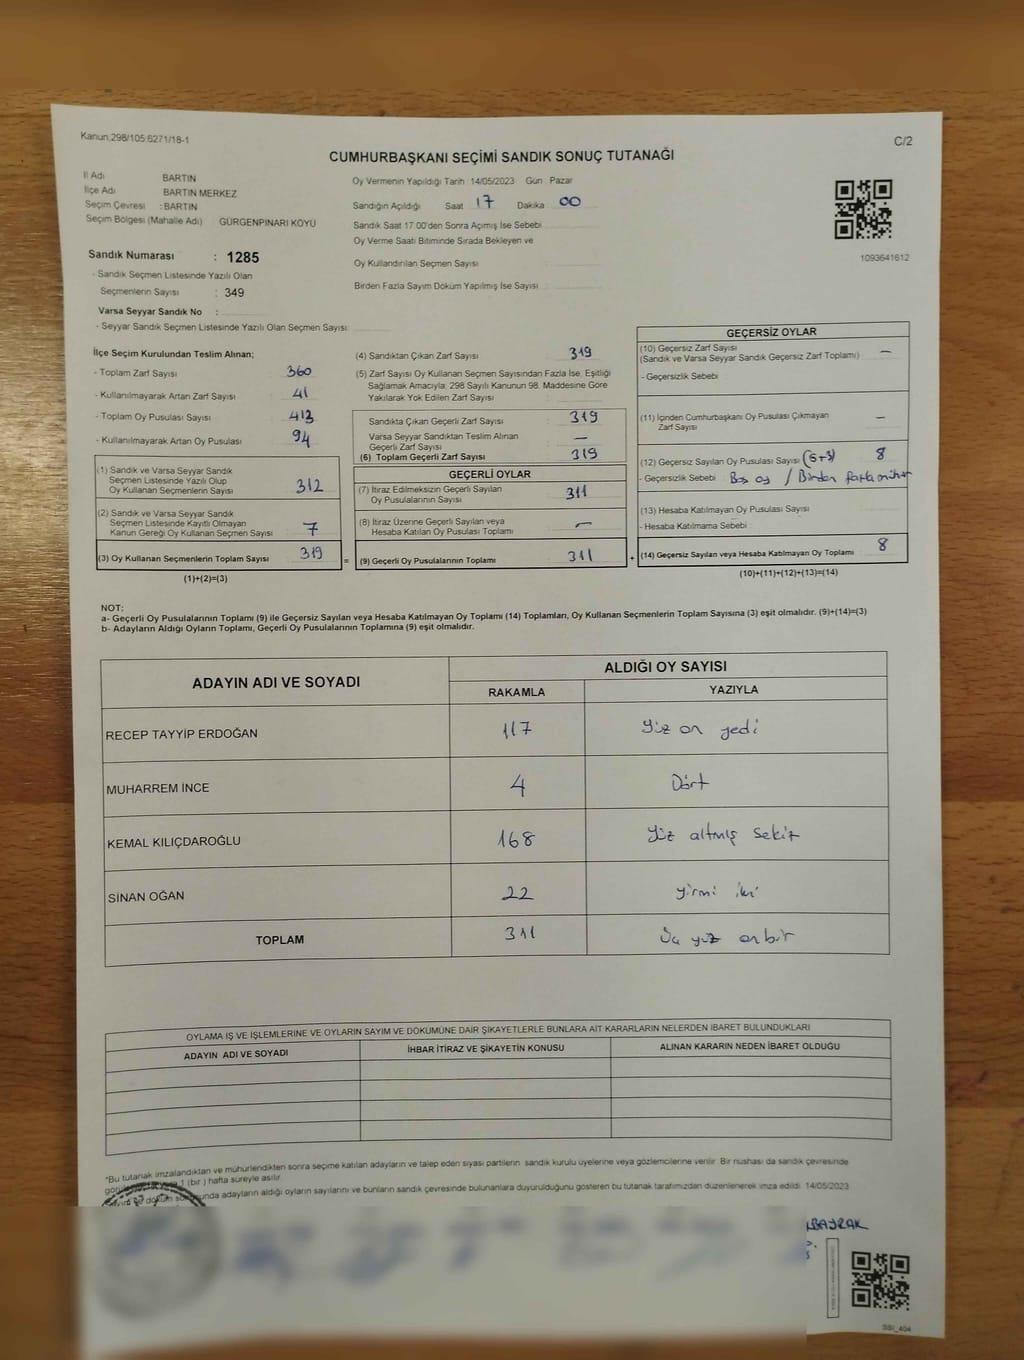 Kanun:298/105:6271/18-1
C/2
CUMHURBAŞKANI SEÇİMİ SANDIK SONUÇ TUTANAĞI
İl Adı BARTIN
İlçe Adı BARTIN MERKEZ
Seçim Çevresi : BARTIN
Seçim Bölgesi (Mahalle Adı) GÜRGENPINARI KÖYÜ
Oy Vermenin Yapıldığı Tarih 14/05/2023 Gün Pazar
Sandığın Açıldığı Saat 17 Dakika 00
Sandık Saat 17:00'den Sonra Açımış İse Sebebi
Oy Verme Saati Bitiminde Sırada Bekleyen ve
Oy Kullandırılan Seçmen Sayısı
Birden Fazla Sayım Döküm Yapılmış İse Sayısı
1093641612
Sandık Numarası : 1285
- Sandık Seçmen Listesinde Yazılı Olan
Seçmenlerin Sayısı : 349
Varsa Seyyar Sandık No :
- Seyyar Sandık Seçmen Listesinde Yazılı Olan Seçmen Sayısı:
İlçe Seçim Kurulundan Teslim Alınan;
- Toplam Zarf Sayısı 360
- Kullanılmayarak Artan Zarf Sayısı 41
- Toplam Oy Pusulası Sayısı 413
- Kullanılmayarak Artan Oy Pusulası 94
(1) Sandık ve Varsa Seyyar Sandık
Seçmen Listesinde Yazılı Olup
Oy Kullanan Seçmenlerin Sayısı 312
(2) Sandık ve Varsa Seyyar Sandık
Seçmen Listesinde Kayıtlı Olmayan
Kanun Gereği Oy Kullanan Seçmen Sayısı 7
(3) Oy Kullanan Seçmenlerin Toplam Sayısı 319 =
(1)+(2)=(3)
(4) Sandıktan Çıkan Zarf Sayısı 319
(5) Zarf Sayısı Oy Kullanan Seçmen Sayısından Fazla İse, Eşitliği
Sağlamak Amacıyla; 298 Sayılı Kanunun 98. Maddesine Göre
Yakılarak Yok Edilen Zarf Sayısı :
Sandıkta Çıkan Geçerli Zarf Sayısı : 319
Varsa Seyyar Sandıktan Teslim Alınan
Geçerli Zarf Sayısı : —
(6) Toplam Geçerli Zarf Sayısı : 319
GEÇERLİ OYLAR
(7) İtiraz Edilmeksizin Geçerli Sayılan
Oy Pusulalarının Sayısı : 311
(8) İtiraz Üzerine Geçerli Sayılan veya
Hesaba Katılan Oy Pusulaları Toplamı : —
(9) Geçerli Oy Pusulalarının Toplamı : 311 +
GEÇERSİZ OYLAR
(10) Geçersiz Zarf Sayısı
(Sandık ve Varsa Seyyar Sandık Geçersiz Zarf Toplamı) —
- Geçersizlik Sebebi
(11) İçinden Cumhurbaşkanı Oy Pusulası Çıkmayan
Zarf Sayısı —
(12) Geçersiz Sayılan Oy Pusulası Sayısı (5+3) 8
- Geçersizlik Sebebi Boş oy / Birden fazla mühür
(13) Hesaba Katılmayan Oy Pusulası Sayısı
- Hesaba Katılmama Sebebi :
(14) Geçersiz Sayılan veya Hesaba Katılmayan Oy Toplamı 8
(10)+(11)+(12)+(13)=(14)
NOT:
a- Geçerli Oy Pusulalarının Toplamı (9) ile Geçersiz Sayılan veya Hesaba Katılmayan Oy Toplamı (14) Toplamları, Oy Kullanan Seçmenlerin Toplam Sayısına (3) eşit olmalıdır. (9)+(14)=(3)
b- Adayların Aldığı Oyların Toplamı, Geçerli Oy Pusulalarının Toplamına (9) eşit olmalıdır.
ADAYIN ADI VE SOYADI
ALDIĞI OY SAYISI
RAKAMLA YAZIYLA
RECEP TAYYİP ERDOĞAN 117 Yüz on yedi
MUHARREM İNCE 4 Dört
KEMAL KILIÇDAROĞLU 168 Yüz altmış sekiz
SİNAN OĞAN 22 yirmi iki
TOPLAM 311 Üç yüz onbir
OYLAMA İŞ VE İŞLEMLERİNE VE OYLARIN SAYIM VE DÖKÜMÜNE DAİR ŞİKAYETLERLE BUNLARA AİT KARARLARIN NELERDEN İBARET BULUNDUKLARI
ADAYIN ADI VE SOYADI İHBAR İTİRAZ VE ŞİKAYETİN KONUSU ALINAN KARARIN NEDEN İBARET OLDUĞU
*Bu tutanak imzalandıktan ve mühürlendikten sonra seçime katılan adayların ve talep eden siyasi partilerin sandık kurulu üyelerine veya gözlemcilerine verilir. Bir nüshası da sandık çevresinde
1 (bir ) hafta süreyle asılır.
adayların aldığı oyların sayılarını ve bunların sandık çevresinde bulunanlara duyurulduğunu gösteren bu tutanak tarafımızdan düzenlenerek imza edildi. 14/05/2023
LBAYRAK
SBI_404